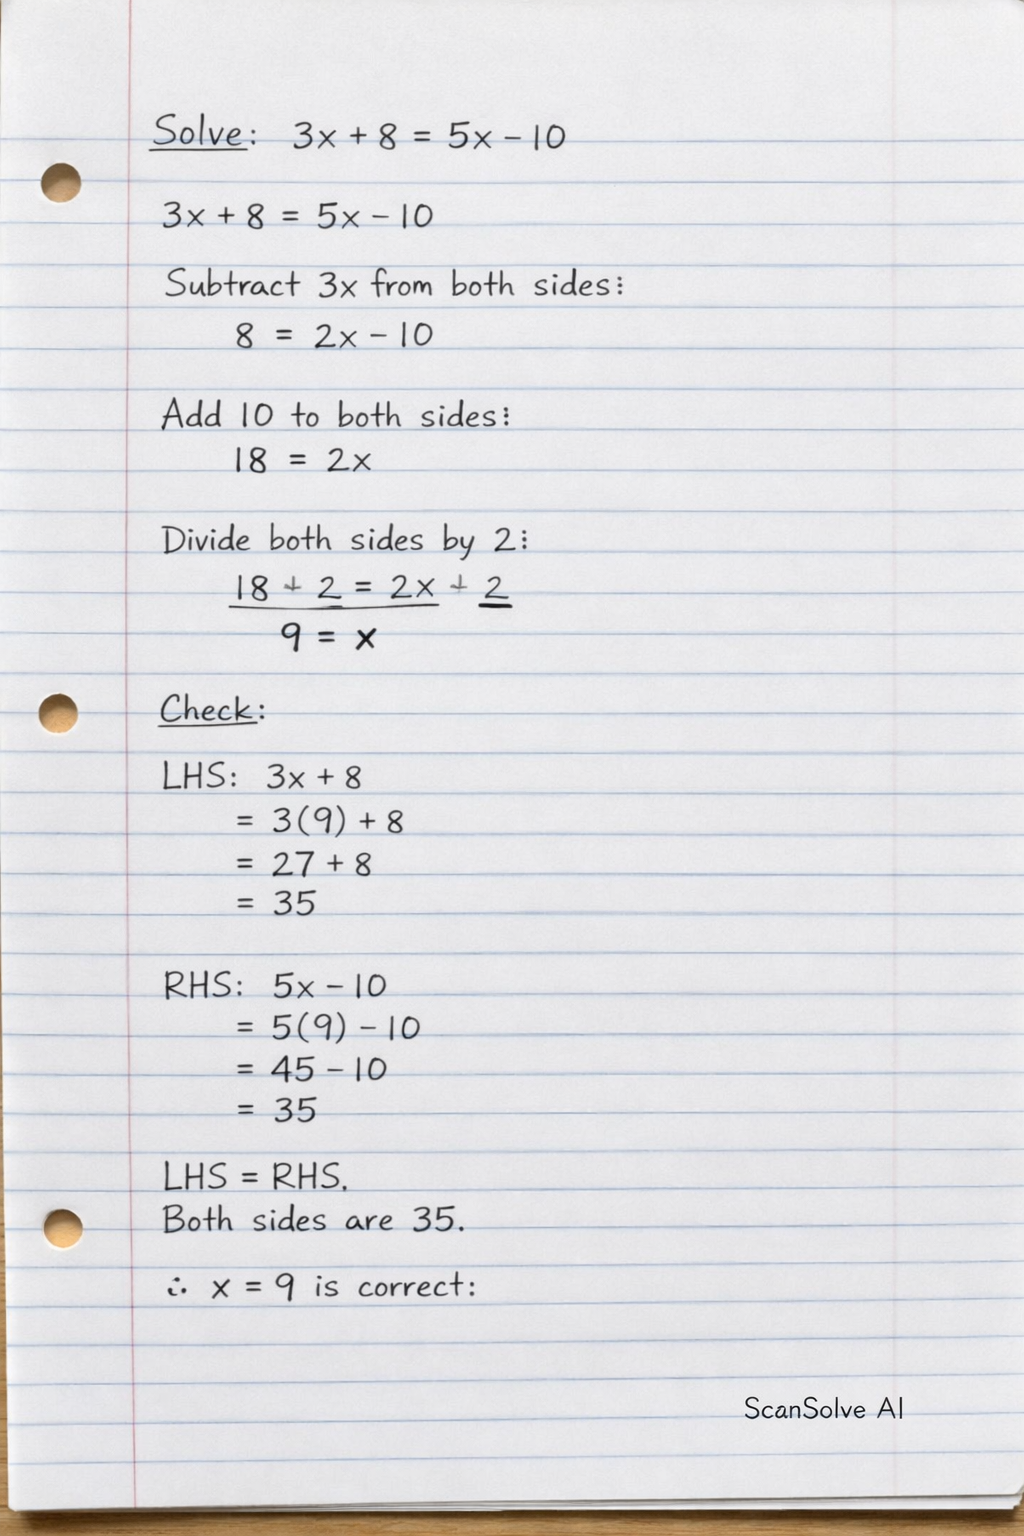 Solve: 3x + 8 = 5x – 10
3x + 8 = 5x – 10
Subtract 3x from both sides:
8 = 2x – 10
Add 10 to both sides:
18 = 2x
Divide both sides by 2:
18 + 2 = 2x + 2
9 = x
Check:
LHS: 3x + 8
= 3(9) + 8
= 27 + 8
= 35
RHS: 5x – 10
= 5(9) – 10
= 45 – 10
= 35
LHS = RHS.
Both sides are 35.
∴ x = 9 is correct:
ScanSolve AI